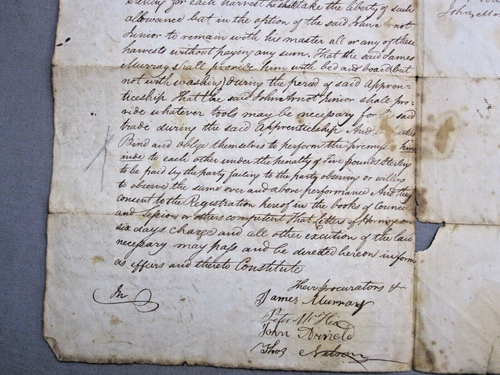 for each harvest he shall take the liberty of such
allowance but in the option of the said John Arnot
Junior to remain with his master all or any of these
harvests without paying any sum. That the said James
Murray shall provide him with bed and board but
not with washing during the period of said Appren-
ticeship That the said John Arnot Junior shall pro-
vide whatever tools may be necessary for the said
trade during the said Apprenticeship And
Bind and oblige themselves to perform the premises
to each other under the penalty of five pounds Sterling
to be paid by the party failing to the party observing or willing
to observe the same over and above performance And they
consent to the Registration hereof in the books of Council
and Session or others competent That letters of Horning on
six days charge and all other execution of the law
necessary may pass and be directed hereon in form
as effeirs and thereto Constitute
Their procurators &
In
James Murray
Peter
John Arnold
Thos Nelson